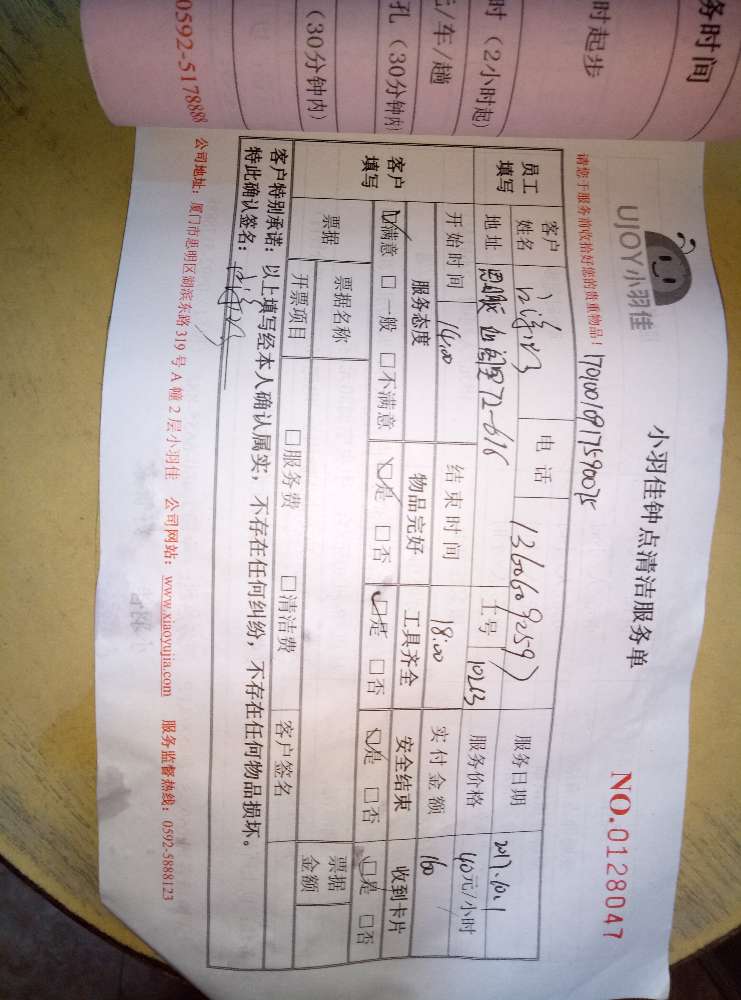 务时间
时起步
时（2小时起）
元/车/趟
孔（30分钟内）
（30分钟内）
0592-5178888
UJOY小羽佳
小羽佳钟点清洁服务单
NO.0128047
请您于服务前收拾好您的贵重物品！
员工填写
客户姓名
电话 13606092597
服务日期 2017.10.1
地址
72-616
工号 10213
服务价格 40元/小时
开始时间 14:00
结束时间 18:00
实付金额 160
客户填写
服务态度 物品完好 工具齐全 安全结束 收到卡片
☑满意 □一般 □不满意 ☑是 □否 ☑是 □否 ☑是 □否 ☑是 □否
票据
票据名称
票据金额
开票项目 □服务费 □清洁费
客户签名
客户特别承诺：以上填写经本人确认属实，不存在任何纠纷，不存在任何物品损坏。
特此确认签名：
公司地址：厦门市思明区湖滨东路319号A幢2层小羽佳 公司网站：www.xiaoyujia.com 服务监督热线：0592-5888123